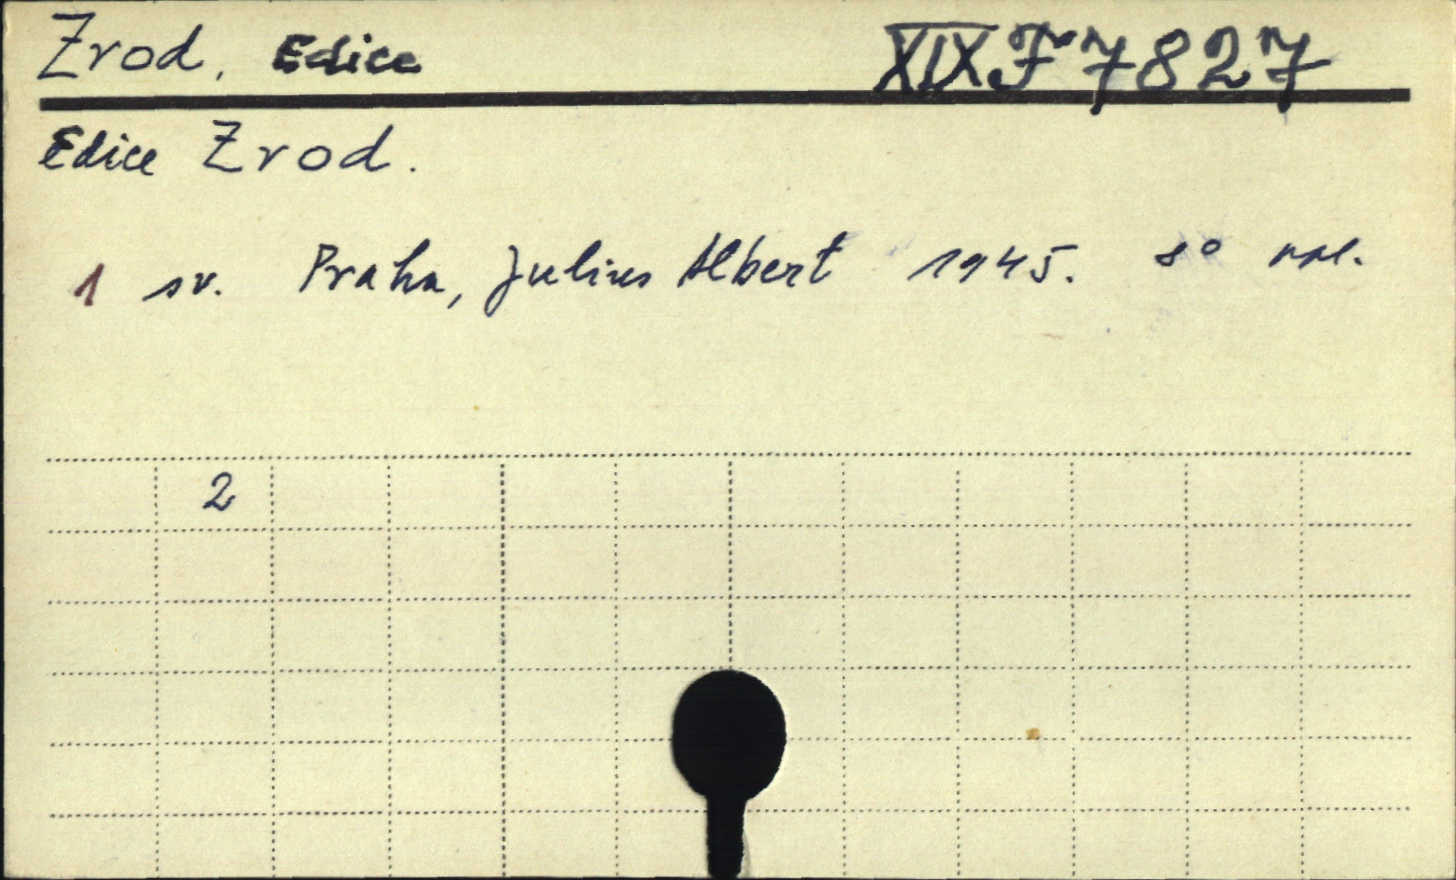 Zrod, Edice XIX F 7827
Edice Zrod.
1 sv. Praha, Julius Albert 1945. 8°
2